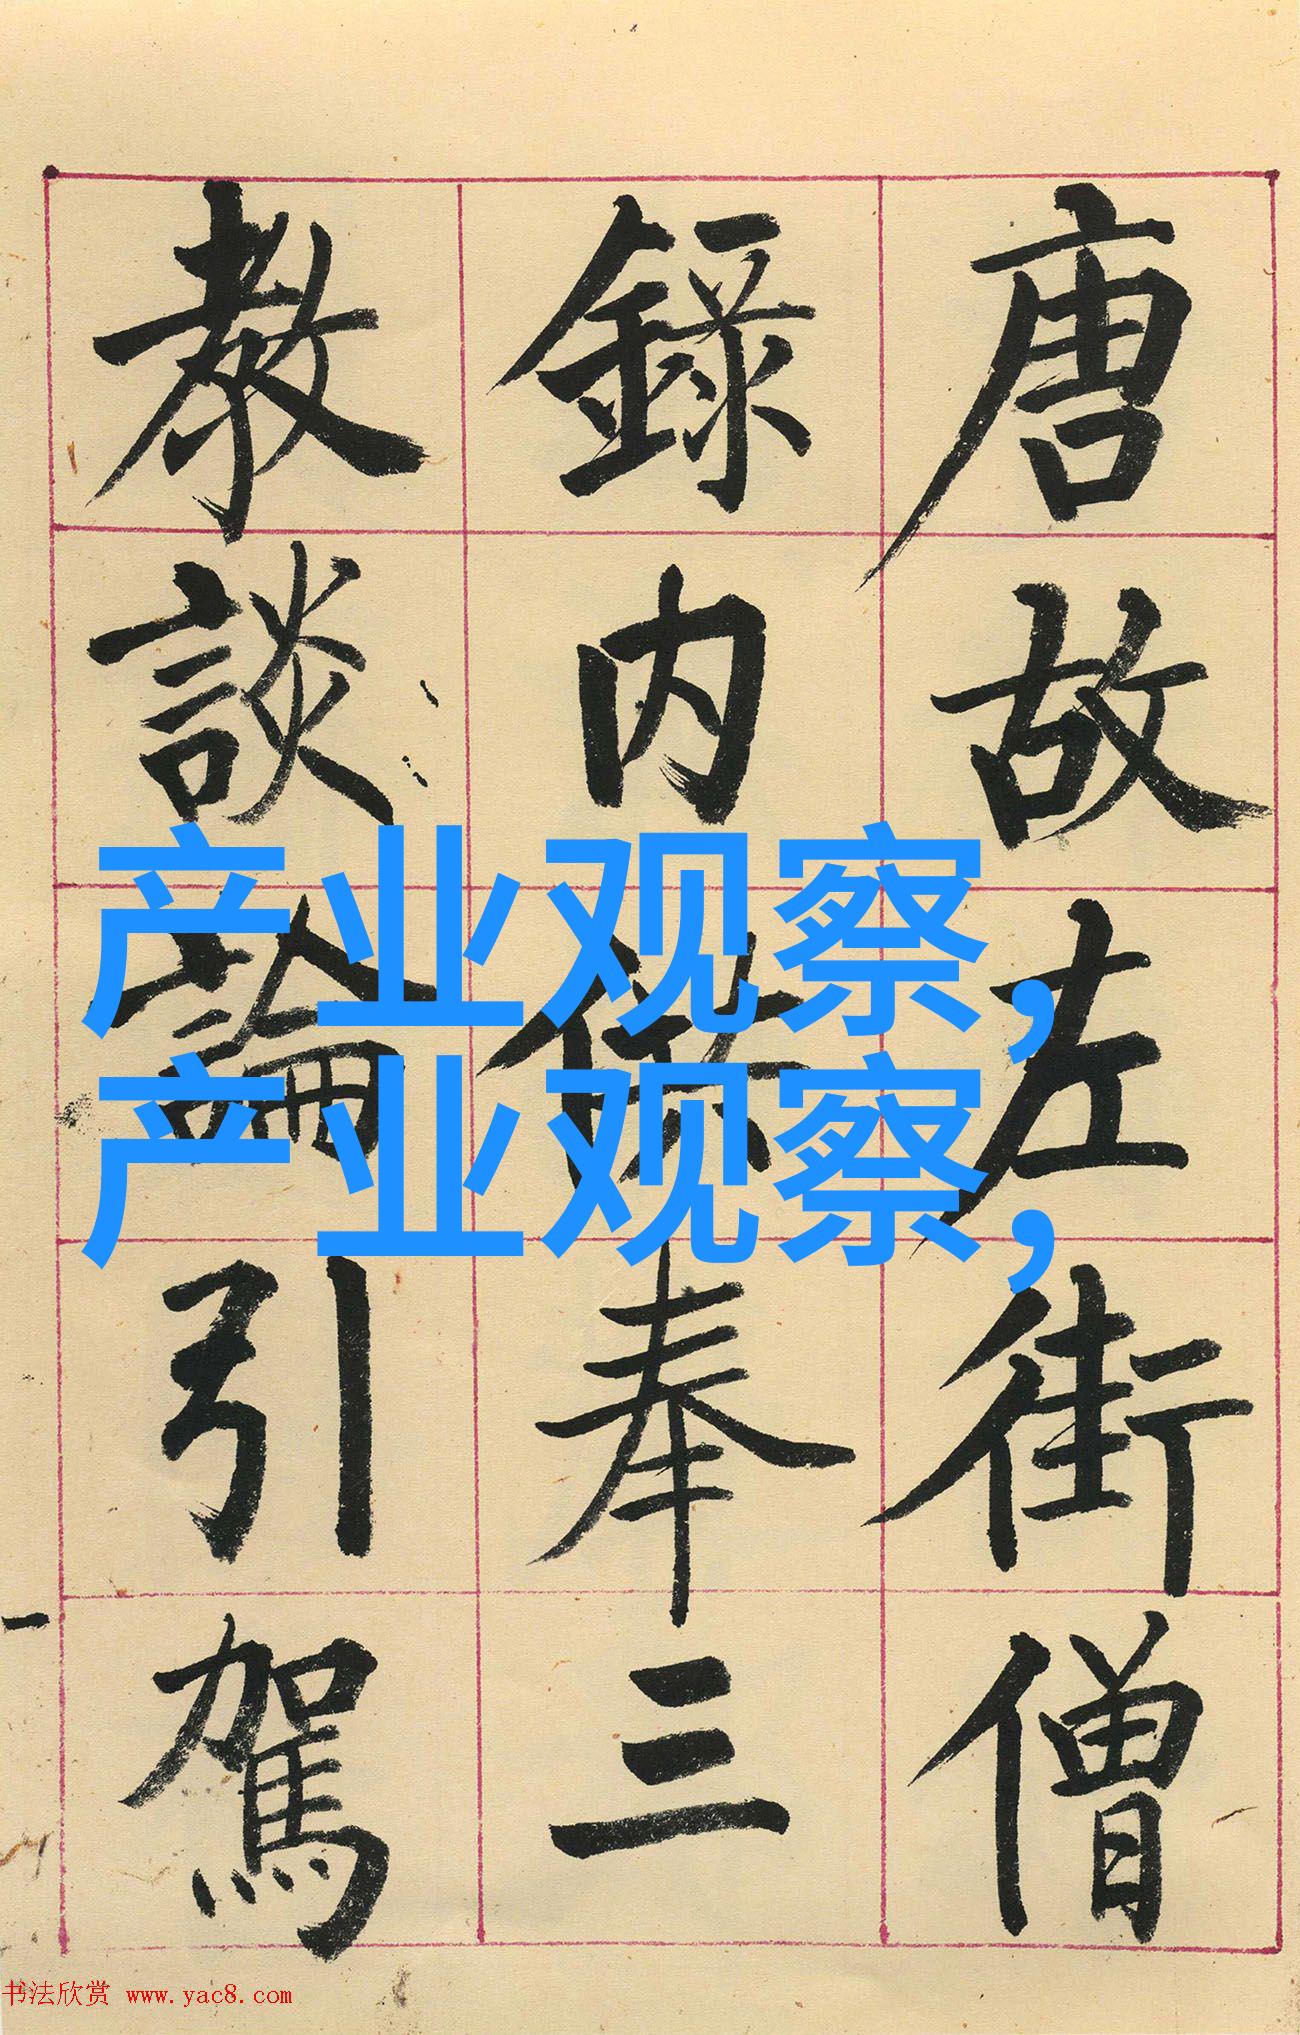 唐故左街僧
錄内供奉三
教談論引駕
产业观察,
产业观察,
书法欣赏 www.yac8.com